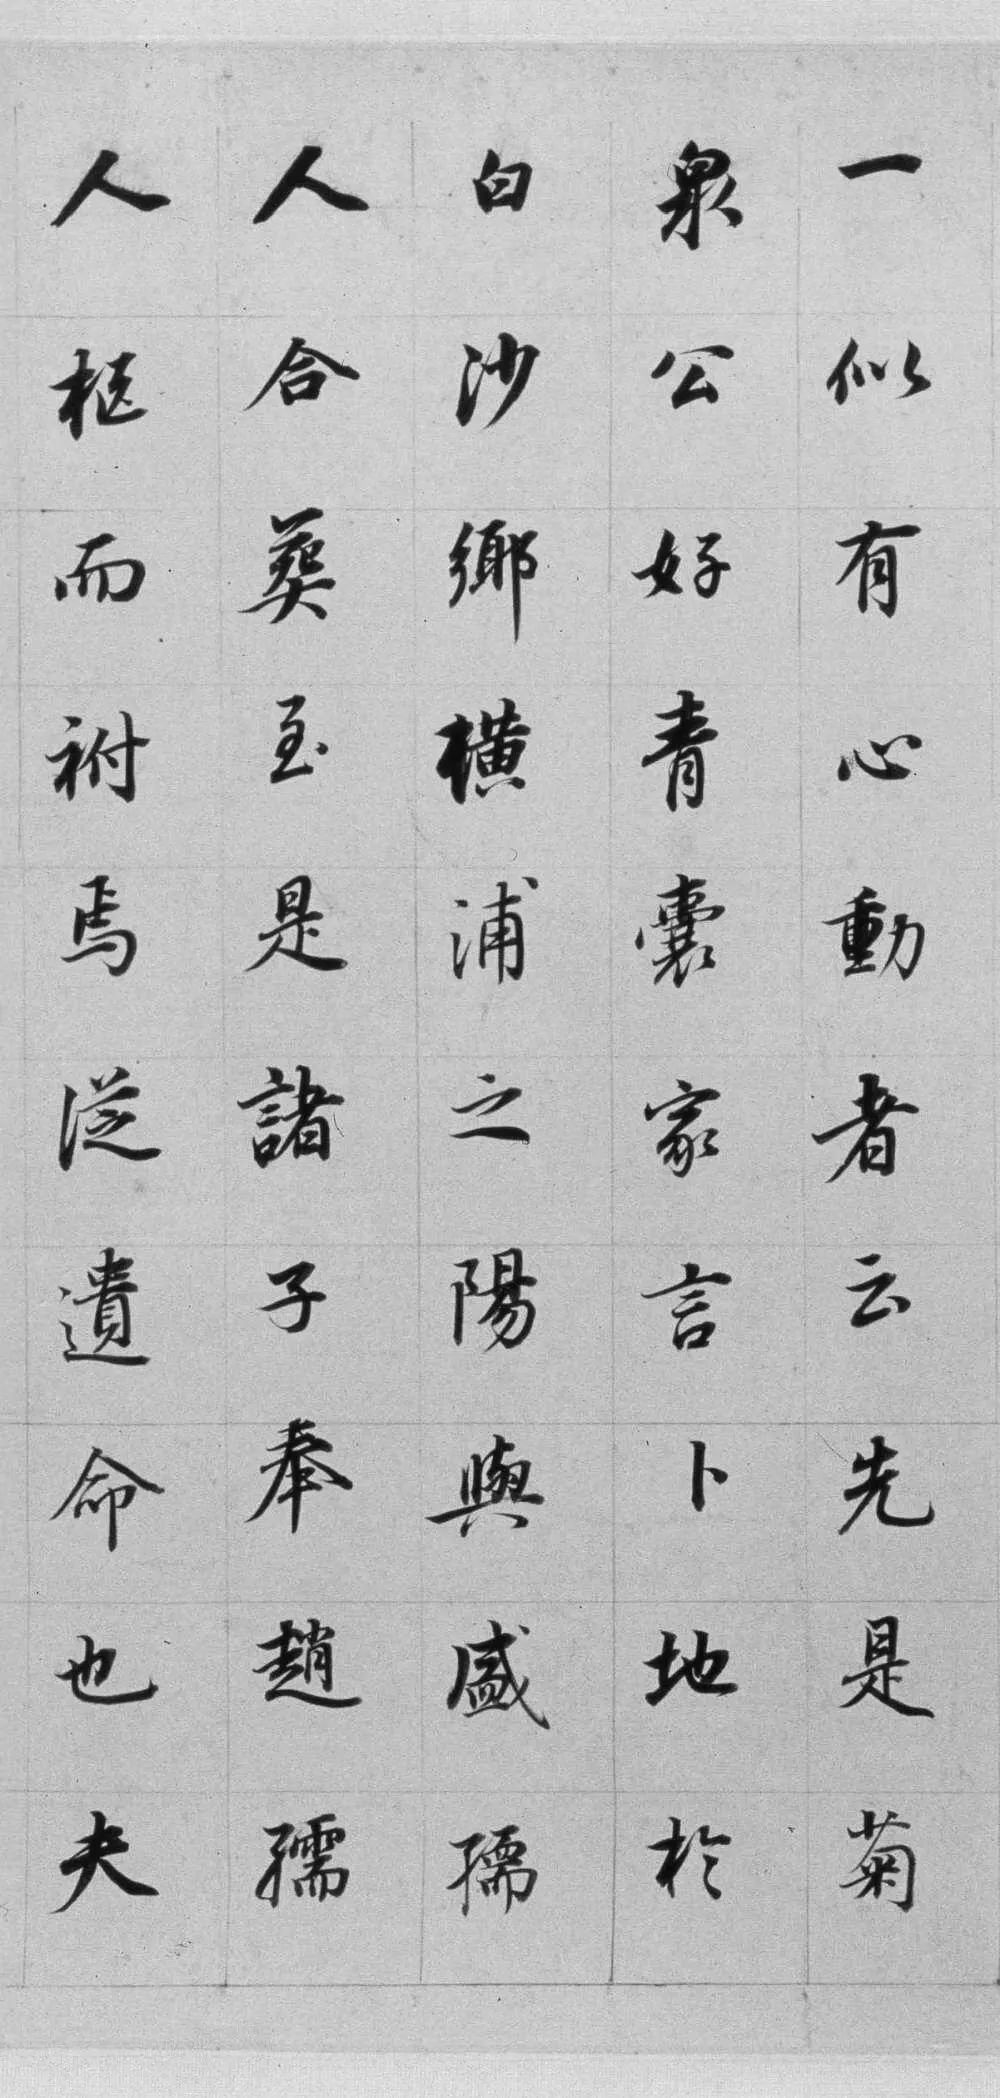 一似有心動者云先是菊
泉公好青囊家言卜地於
白沙鄉橫浦之陽與盛孺
人合葬至是諸子奉趙孺
人柩而祔焉從遺命也夫